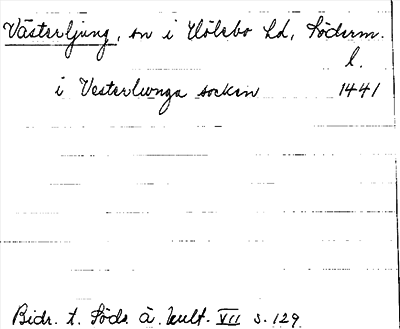 Västerljung, sn i Hölebo hd, Söderm.
l.
i Vesterliunga sockin 1441
Bidr. t. Söds ä. kult. VII s. 129